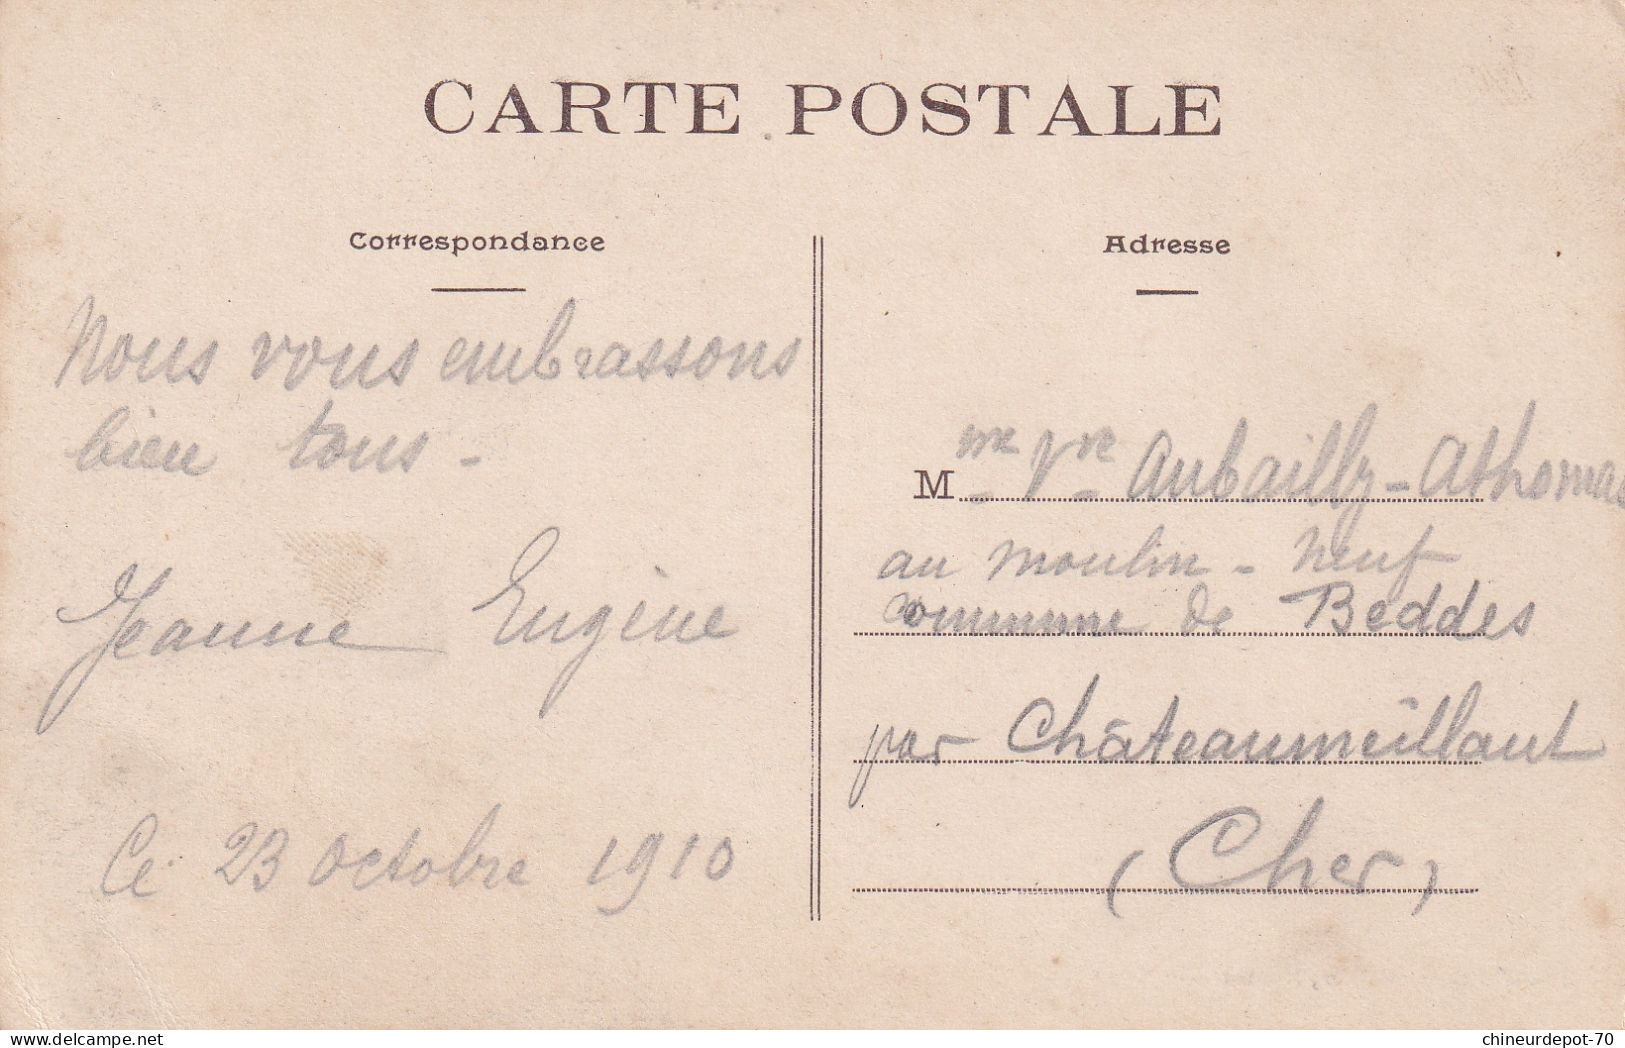 CARTE POSTALE
Correspondance
Nous vous embrassons
bien tous -
Jeanne Eugène
Ce 23 Octobre 1910
Adresse
Mme Vve Aubailly-Athomas
au moulin-neuf
commune de Beddes
par Châteaumeillant
(Cher)
chineurdepot-70